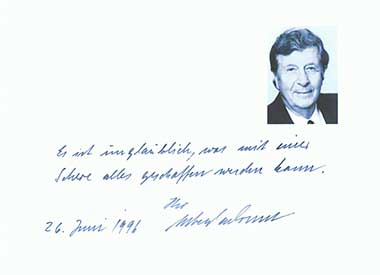 Es ist unglaublich, was mit einer
Schere alles geschaffen werden kann.
Ihr
26. Juni 1996